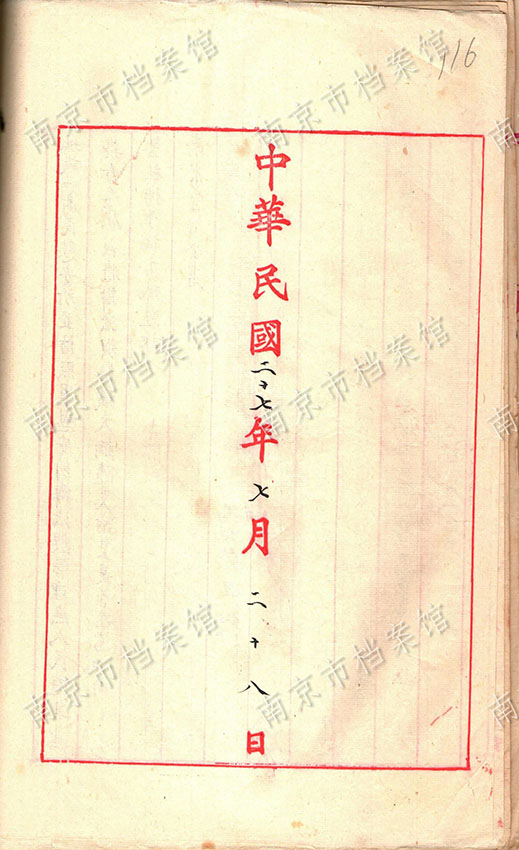 116
中華民國二十七年七月二十八日
南京市档案馆
南京市档案馆
南京市档案馆
南京市档案馆
南京市档案馆
南京市档案馆
南京市档案馆
南京市档案馆